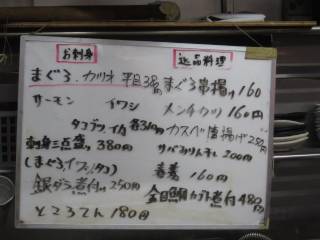 お刺身
逸品料理
まぐろ、カツオ 平目3種
まぐろ串揚げ160
サーモン イワシ
メンチカツ 160円
タコブツ、イカ 各310円
カスベ唐揚げ250円
刺身三点盛り 380円
サバみりん干し 200円
(まぐろ、イワシ、タコ)
春巻 160円
銀ダラ煮付け 250円
金目鯛カブト煮付 480円
ところてん 180円